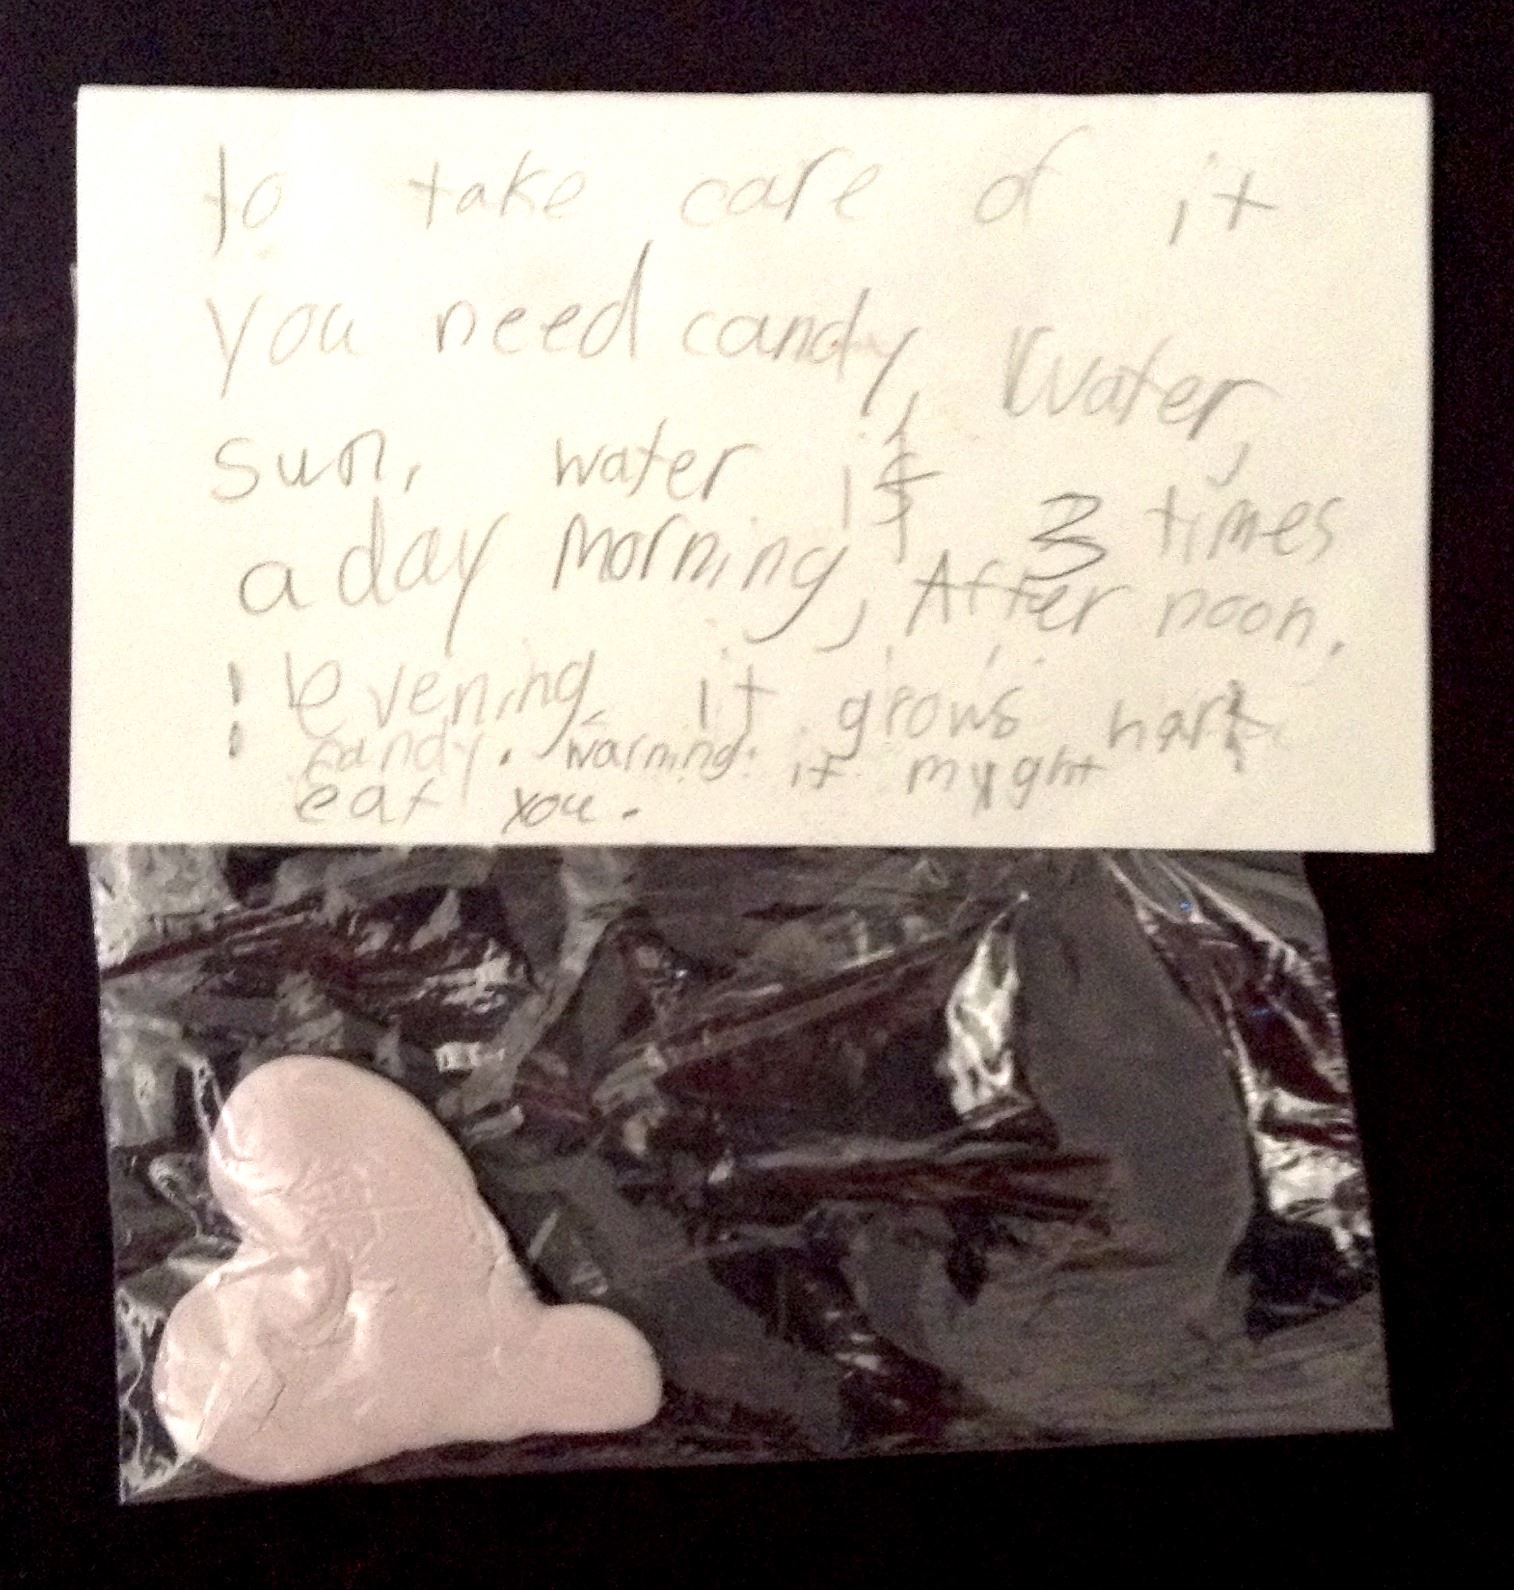 to take care of it
you need candy, Water,
sun, water it 3 times
a day morning, After noon,
! evening it grows hart
candy. warning: it myght
eat you.